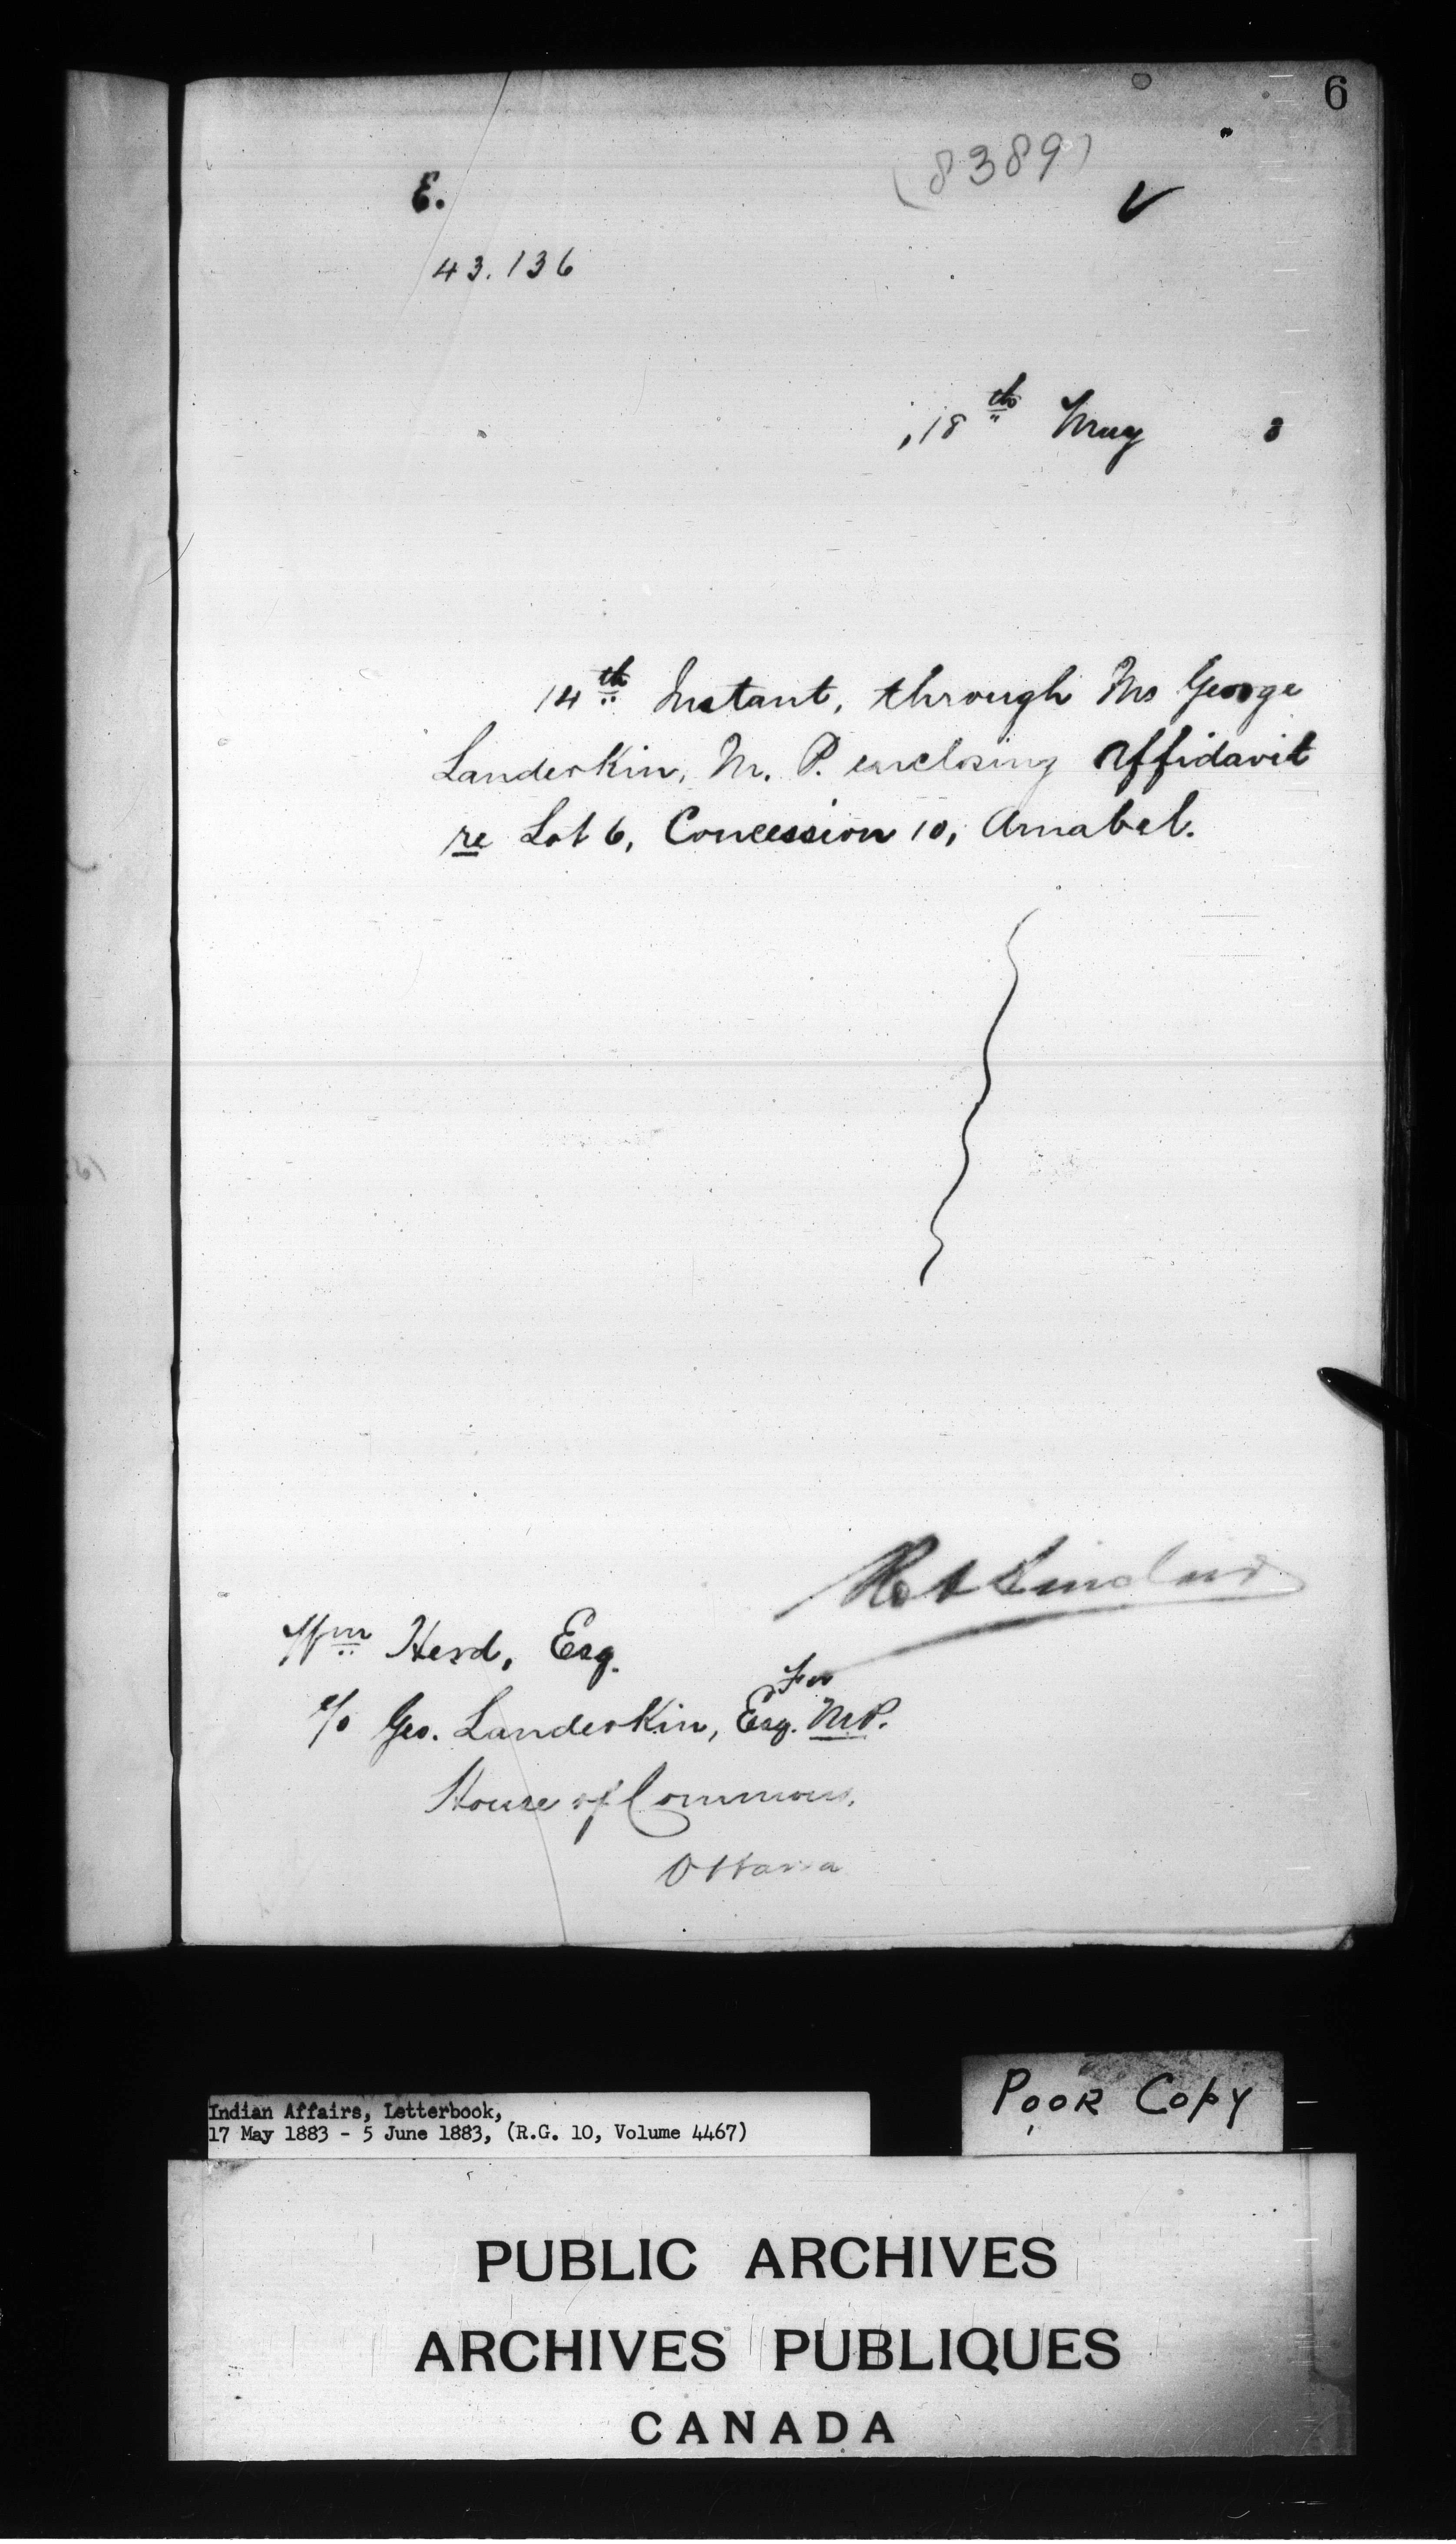 6
(8389)
E.
43.136
18th May 3
14th Instant, through Mr George
Landerkin, M. P. enclosing affidavit
re Lot 6, Concession 10, Amabel.
Rot Sinclair
Wm Herd, Esq.
For
c/o Geo. Landerkin, Esq. M.P.
House of Commons,
Ottawa
Poor Copy
Indian Affairs, Letterbook,
17 May 1883 - 5 June 1883, (R.G. 10, Volume 4467)
PUBLIC ARCHIVES
ARCHIVES PUBLIQUES
CANADA